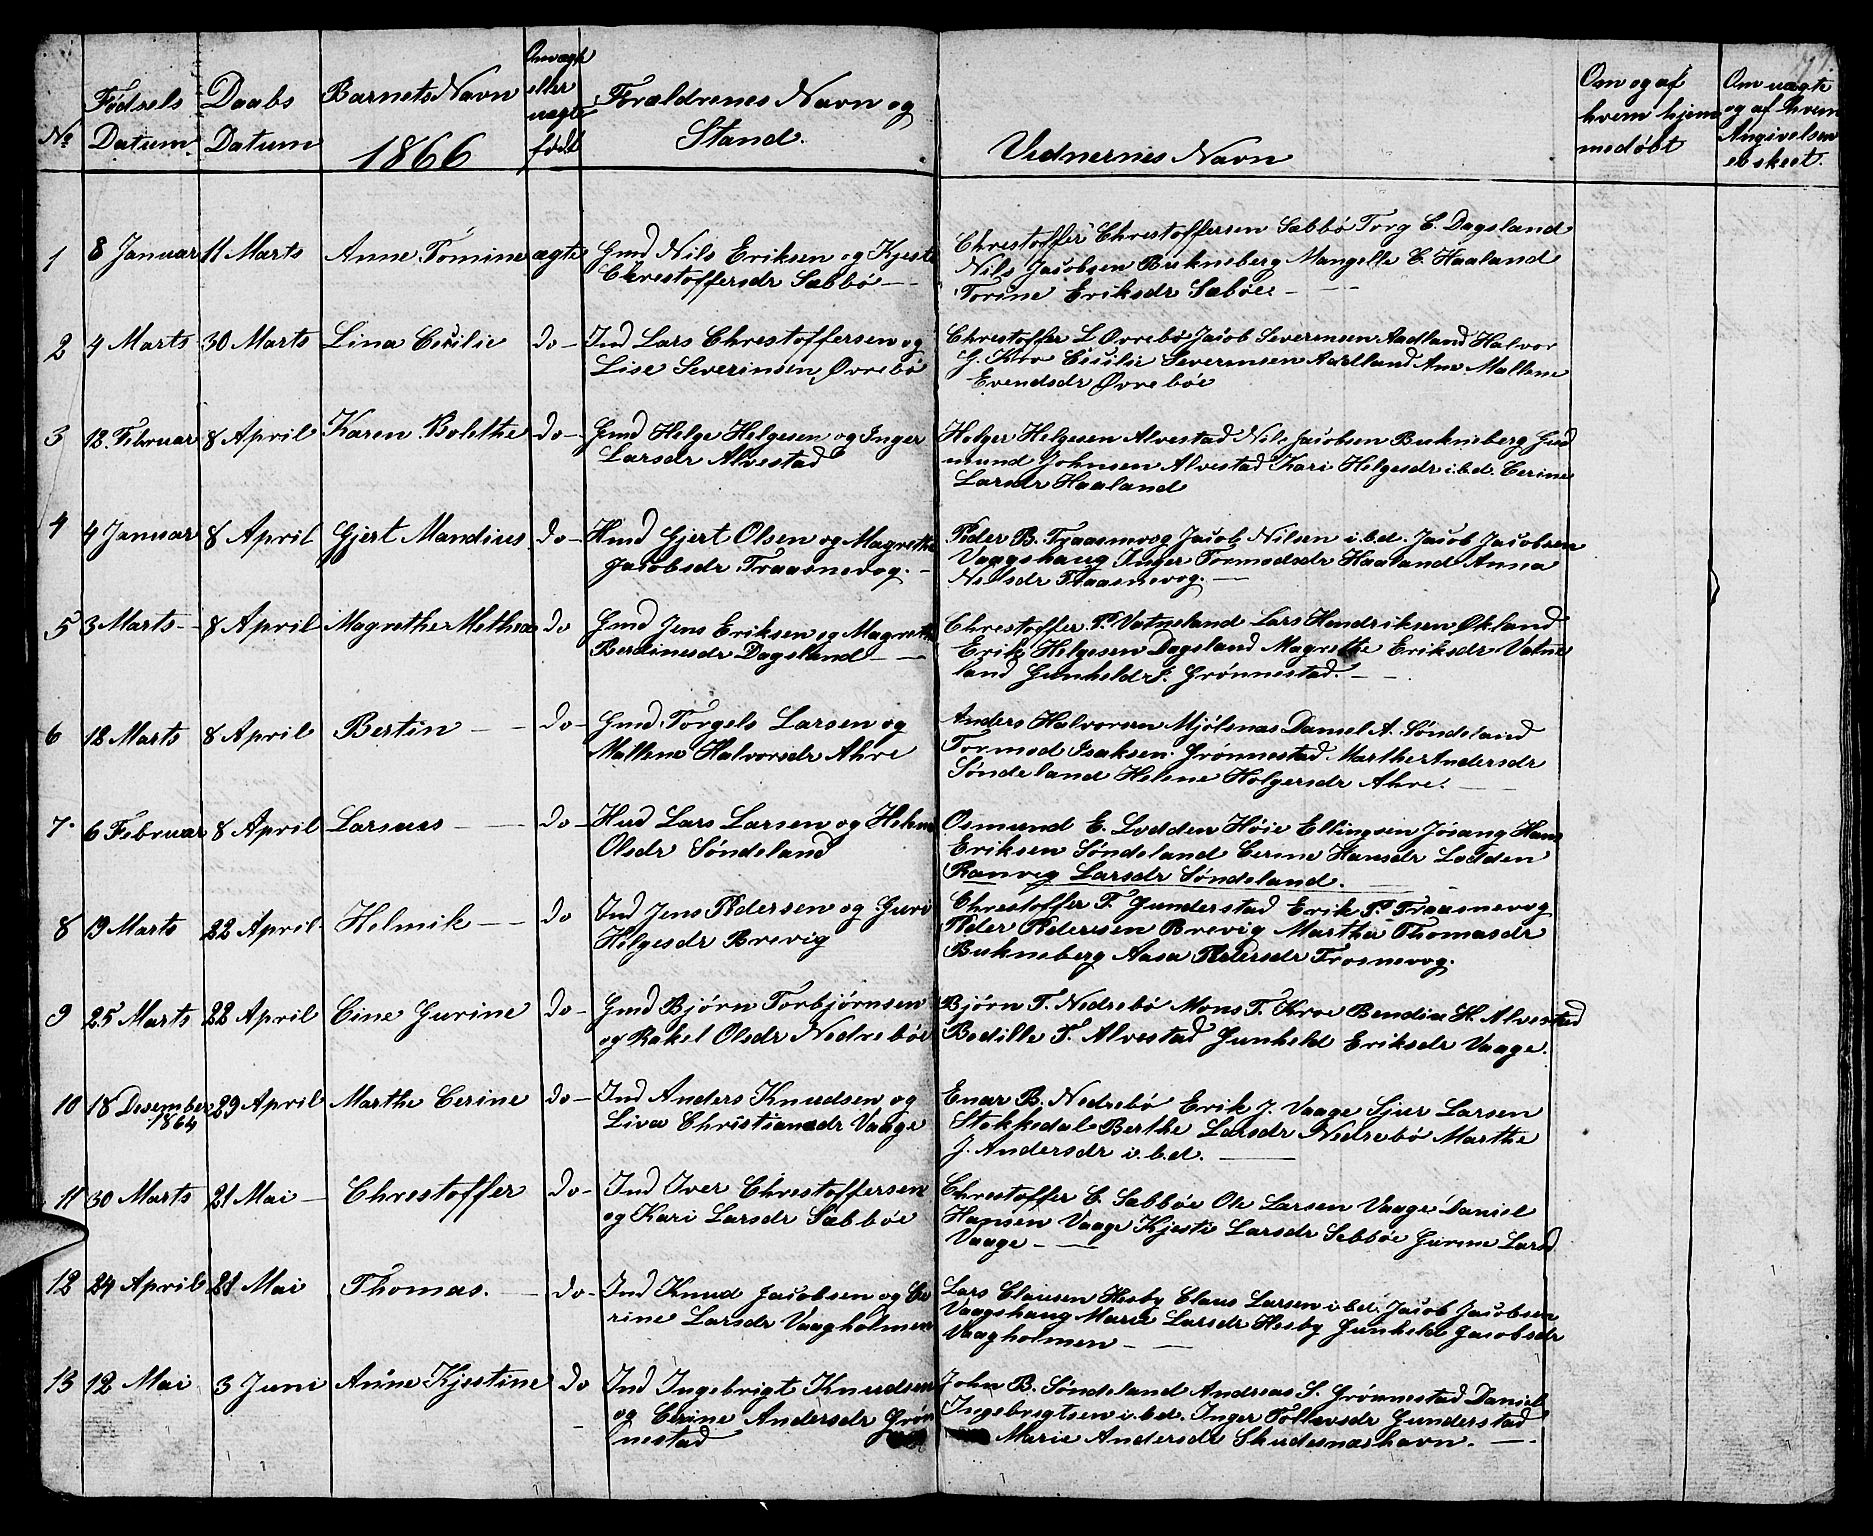 No
Fødsels
Datum
Daabs
Datum
Barnets Navn
1866
Om ægte
eller
uægte
født
Forældrenes Navn og
Stand.
Vidnernes Navn
Om og af
hvem hjem
medøbt
Om uægte
og af hvem
Angivelsen
er skeet.
1 8 Januar 11 Marts Anne Tomine ægte Gmd Nils Eriksen og Kjesti
Chrestoffersdr Sæbbø
Chrestoffer Chrestoffersen Sæbbø Torg C. Dagsland
Nils Jacobsen Bukneberg Mangelle C. Haaland
Torine Eriksdr Sæbøe
2 4 Marts 30 Marts Lina Cecilie do Ind Lars Chrestoffersen og
Lise Severinsen Øvrebø
Chrestoffer L Øvrebø Jacob Severinsen Aadland Halvor
G. Kro Cicilie Severinsen Aadland Ane Mallene
Evendsdr Øvrebøe
3 12. Februar 8 April Karen Bolethe do Gmd Helge Helgesen og Inger
Larsdr Alvestad
Holger Helgesen Alvestad Nils Jacobsen Bukneberg Gud
mund Johnsen Alvestad Kari Helgesdr i.b.d. Cerine
Larsdr Haaland
4 4 Januar 8 April Gjert Mandius do Hmd Gjert Olsen og Magrethe
Jacobsdr Traasnevog.
Peder B. Traasnevog Jacob Nilsen i.b.d. Jacob Jacobsen
Vaagshaug Inger Tormodsdr Haaland Anna
Nilsdr Traasnevog.
5 3 Marts 8 April Magrethe Methea do Gmd Jens Eriksen og Magrethe
Berdinesdr Dagsland
Chrestoffer P. Vatneland Lars Hendriksen Økland
Erik Helgesen Dagsland Magrethe Eriksdr Vatne
land Gunheld I. Grønnestad.
6 18 Marts 8 April Bertin do Gmd. Torgels Larsen og
Mallene Halvorsdr Ahre
Anders Halvorsen Mjølsnas Daniel A. Søndeland
Tormod Isaksen Grønnestad Marthe Andersdr
Søndeland Helene Holgersdr Ahre.
7. 6 Februar 8 April Larsius do Hud Lars Larsen og Helene
Olsdr Søndeland
Osmund E. Lodden Høie Ellingsen Jøsang Hans
Eriksen Søndeland Cerine Hansdr Lodden
Ranveg Larsdr Søndeland.
8 19 Marts 22 April Helmik do Ind Jens Pedersen og Guri
Helgesdr Brevig
Chrestoffer T. Gunderstad Erik P. Traasnevog
Peder Pedersen Brevig Marthe Thomasdr
Bukneberg Aasa Pedersdr Trosnevog.
9 25 Marts 22 April Cine Gurine do Gmd Bjørn Torbjørnsen
og Rakel Olsdr Nedrebøe
Bjørn T. Nedrebø Mons T. Kroe Bendix H. Alvestad
Bodille T. Alvestad Gunheld Eriksdr Vaage.
10 18 Desember 1864 29 April Marthe Cerine do Ind Anders Knudsen og
Liva Christiansdr Vaage
Enar B. Nedrebø Erik J. Vaage Sjur Larsen
Stokkedal Berthe Larsdr Nedrebø Marthe
J. Andersdr i.b.d.
11 30 Marts 21 Mai Chrestoffer do Ind Iver Chrestoffersen
og Kari Larsdr Sæbbøe
Chrestoffer C. Sæbbøe Ole Larsen Vaage Daniel
Hansen Vaage Kjesti Larsdr Sebbøe Gurine Larsd
Vaage
12 24 April 21 Mai Thomas. do Ind Knud Jacobsen og Ce
rine Larsdr Vaagholmen
Lars Clausen Hesby Claus Larsen i.b.d. Jacob Jacobsen
Vaagshaug Marie Larsdr Hesby Gunheld Jacobsdr
Vaagholmen
13 12 Mai 3 Juni Anne Kjestine do Ind Ingebrigt Knudsen
og Cerine Andersdr Grøn
nestad
John B. Søndeland Andreas S. Grønnestad Daniel
Ingebrigtsen i.b.d. Inger Tollevsdr Gunderstad
Marie Andersdr Skudesnæshavn.